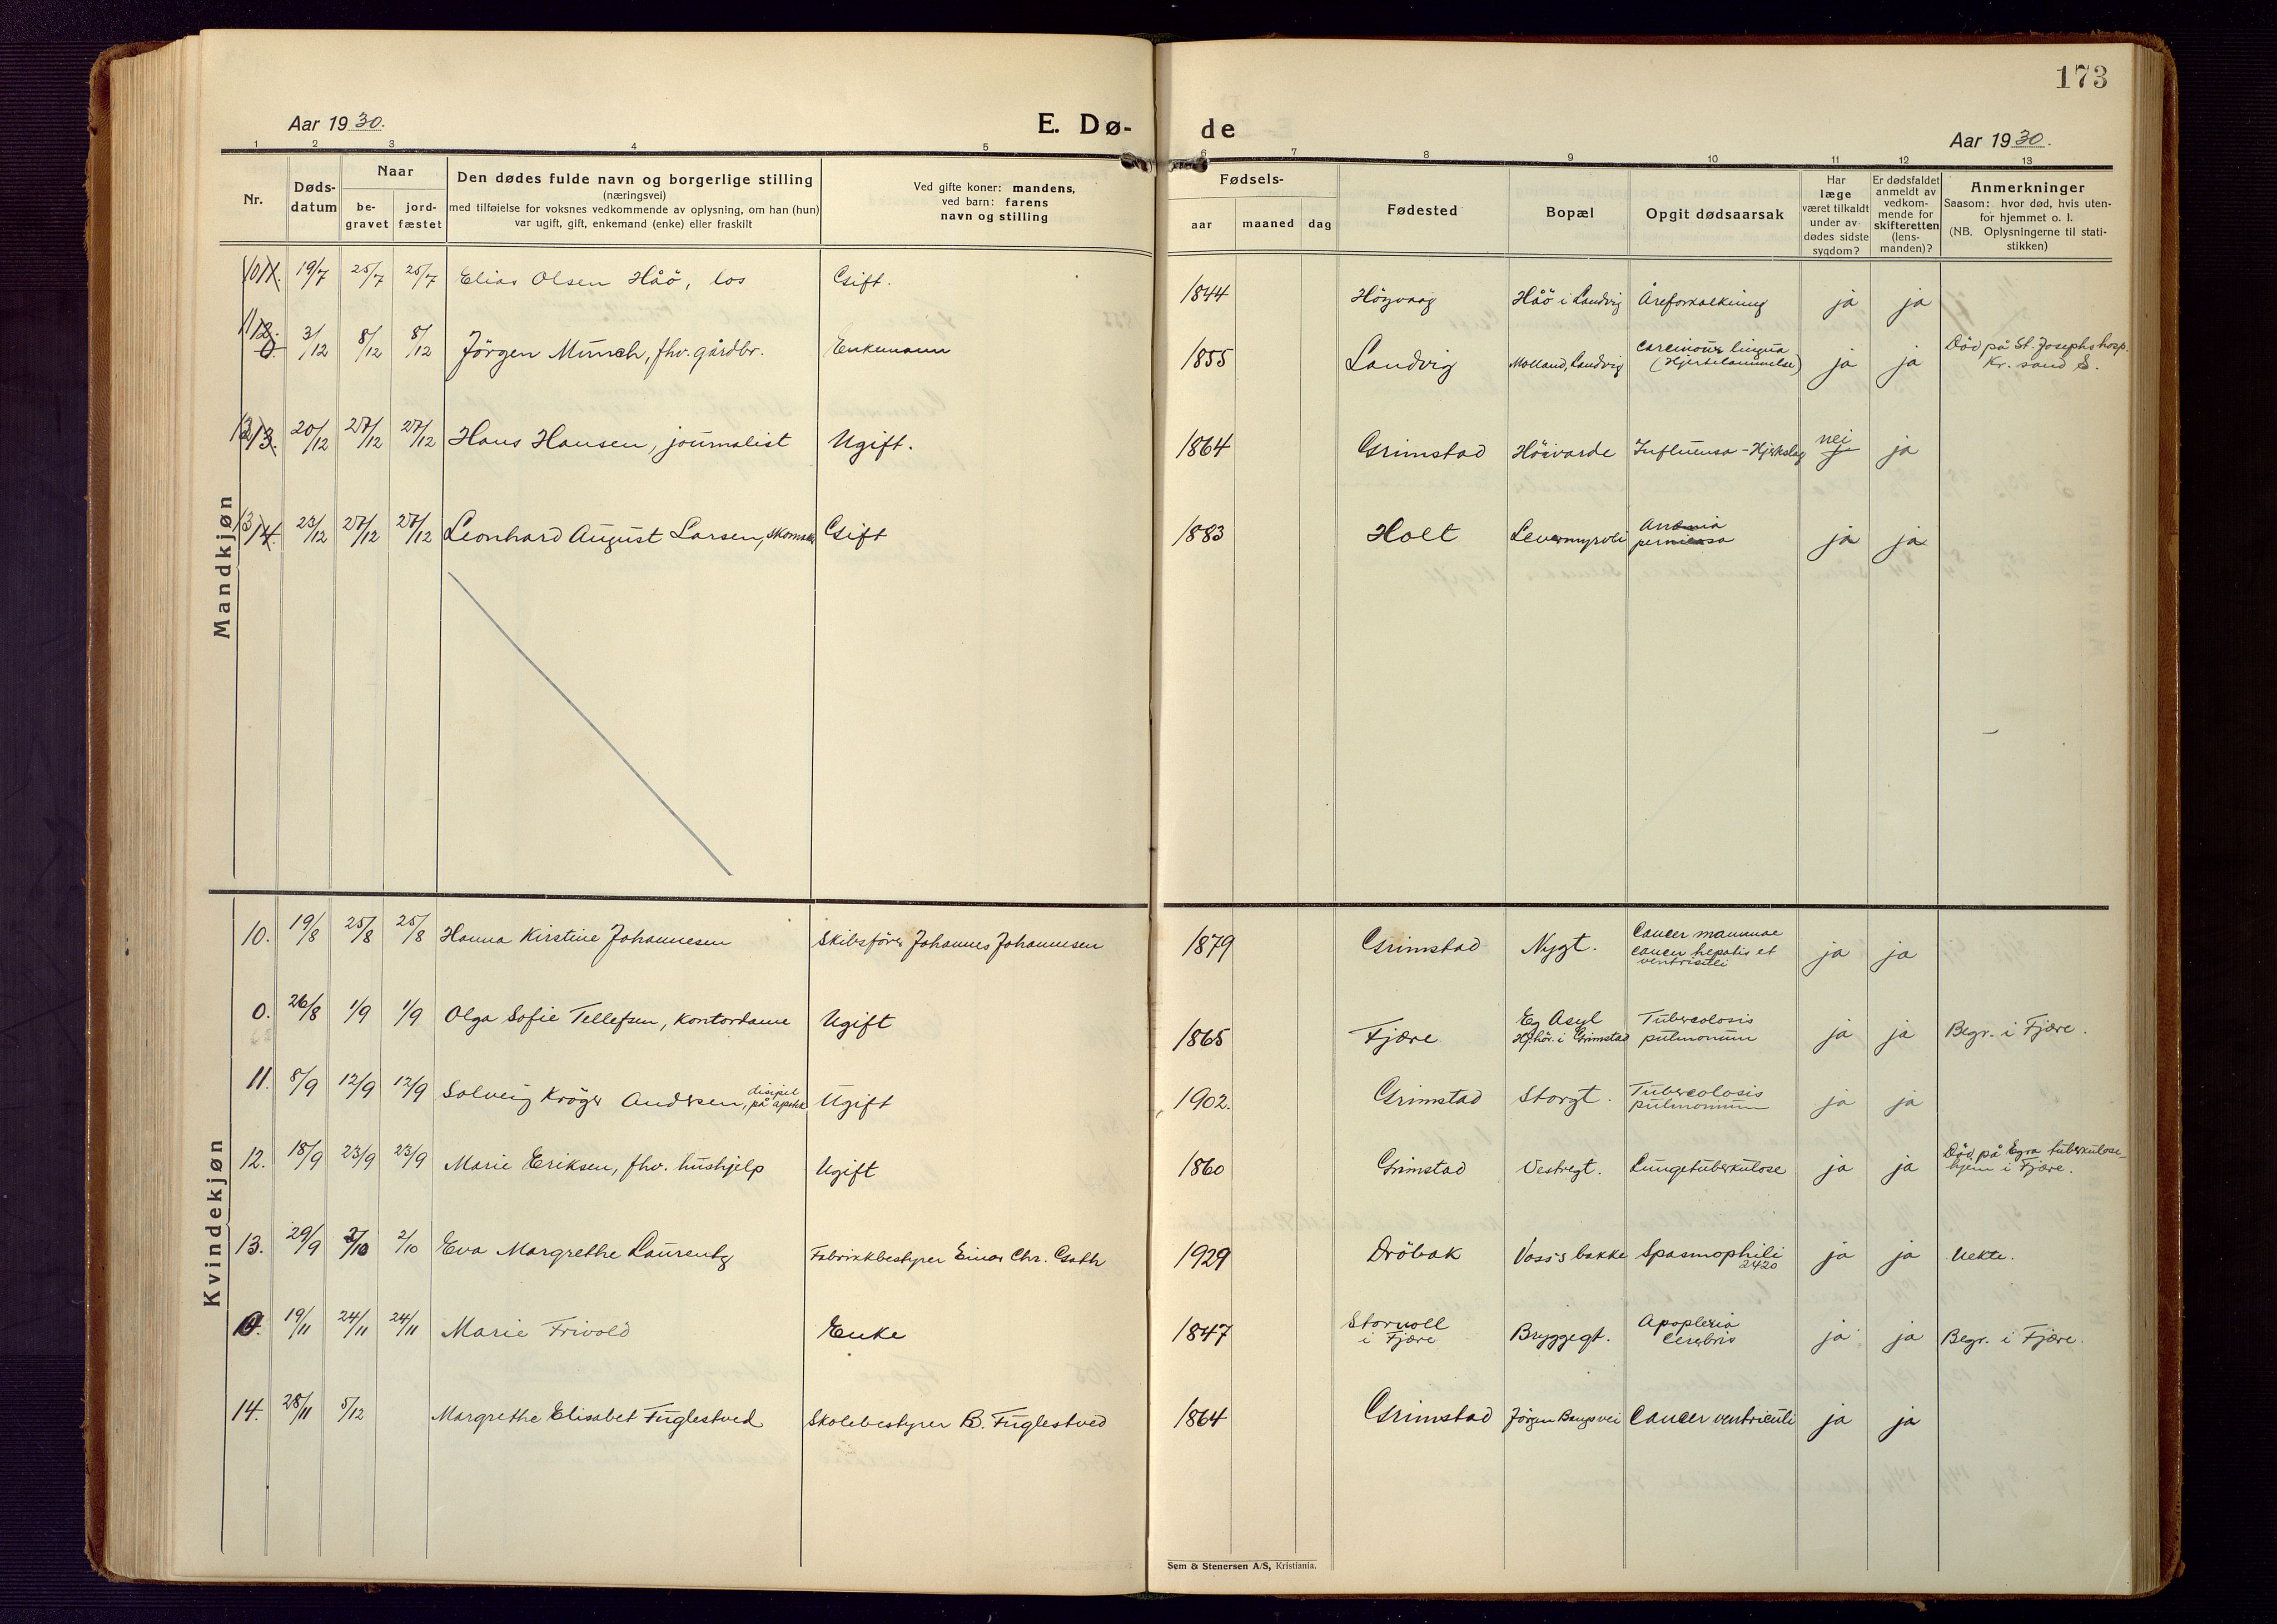 173
Aar 1930.
E. Dø-
de
Aar 1930.
1 2 3 4 5 6 7 8 9 10 11 12 13
Nr.
Døds-
datum
Naar
be-
gravet
jord-
fæstet
Den dødes fulde navn og borgerlige stilling
(næringsvei)
med tilføielse for voksnes vedkommende av oplysning, om han (hun)
var ugift, gift, enkemand (enke) eller fraskilt
Ved gifte koner: mandens,
ved barn: farens
navn og stilling
Fødsels-
aar maaned dag
Fødested
Bopæl
Opgit dødsaarsak
Har
læge
været tilkaldt
under av-
dødes sidste
sygdom?
Er dødsfaldet
anmeldt av
vedkom-
mende for
skifteretten
(lens-
manden)?
Anmerkninger
Saasom: hvor død, hvis uten-
for hjemmet o. l.
(NB. Oplysningerne til stati-
stikken)
Mandkjøn
10 11. 19/7 25/7 25/7 Elias Olsen Håö, los Gift. 1844 Högvaag Håö i Landvig Åreforkalkning ja ja
11 12. 0. 3/12 8/12 8/12 Jörgen Münch, fhv. gårdbr. Enkemann 1855 Landvig Molland, Landvig Carcinour lingua (Hjertelammelse) ja ja Död på St. Josephs hosp. Kr. sand S.
12 13. 20/12 27/12 27/12 Hans Hansen, journalist Ugift. 1864 Grimstad Höivarde Influensa - Hjerteslag nei ja
13 14. 23/12 27/12 27/12 Leonhard August Larsen, skomaker Gift 1883 Holt Levermyrvei Anæmia perniciosa ja ja
Kvindekjøn
10. 19/8 25/8 25/8 Hanna Kirstine Johannesen Skibsförer Johannes Johannesen 1879 Grimstad Nygt. Cancer mammae cancer hepatis et ventriculi ja ja
0. 26/8 1/9 1/9 Olga Sofie Tellefsen, kontordame Ugift 1865 Fjære Eg Asyl Hj.hör. i Grimstad Tuberculosis pulmonum ja ja Begr. i Fjære.
11. 8/9 12/9 12/9 Solveig Kröger Andersen, disipel på apotek Ugift 1902. Grimstad Storgt. Tuberculosis pulmonum ja ja
12. 18/9 23/9 23/9 Marie Eriksen, fhv. hushjelp Ugift 1860 Grimstad Vestregt. Lungetuberkulose ja ja Död på Egra tuberkulose-hjem i Fjære.
13. 29/9 2/10 2/10 Eva Margrethe Laurentz Fabrikkbestyrer Einar Chr. Gath 1929 Dröbak Voss's bakke Spasmophili 2420 ja ja Uekte.
0. 19/11 24/11 24/11 Marie Frivold Enke 1847 Storvoll i Fjære Bryggegt. Apoplexia Cerebris ja ja Begr. i Fjære.
14. 28/11 5/12 Margrethe Elisabet Fuglestved Skolebestyrer B. Fuglestved 1864 Grimstad Jörgen Bangs vei Cancer ventriculi ja ja
Sem & Stenersen A/S, Kristiania.